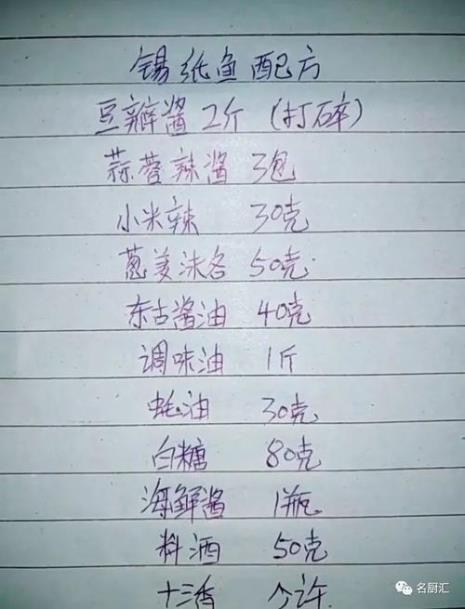 锡纸鱼配方
豆瓣酱 2斤 (打碎)
蒜蓉辣酱 3包
小米辣 30克
葱姜沫各 50克
东古酱油 40克
调味油 1斤
蚝油 30克
白糖 80克
海鲜酱 1瓶
料酒 50克
十三香 少许
名厨汇